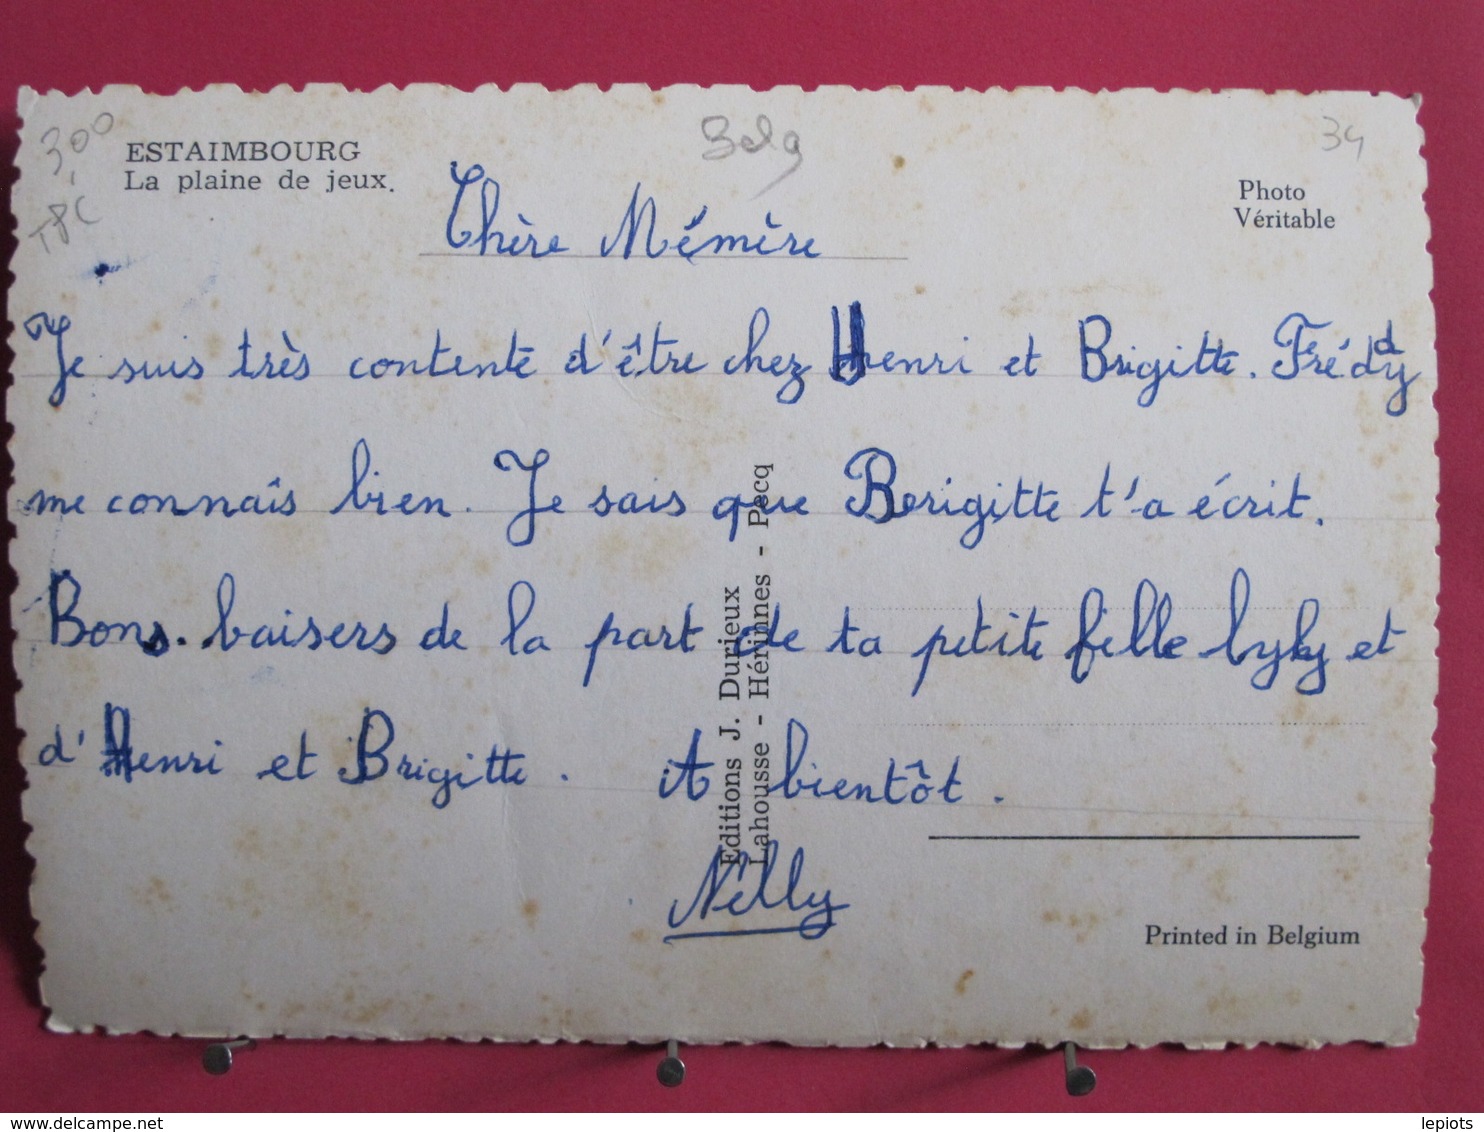 300
ESTAIMBOURG
La plaine de jeux.
TPC
Belg
34
Photo
Véritable
Chère Mémère
Je suis très contente d'être chez Henri et Brigitte. Fréddy
me connaîs bien. Je sais que Berigitte t'a écrit.
Bons baisers de la part de ta petite fille Lyly et
d'Henri et Brigitte. A bientôt.
Nelly
Editions J. Durieux
Lahousse - Hérinnes - Pecq
Printed in Belgium
delcampe.net
lepiots